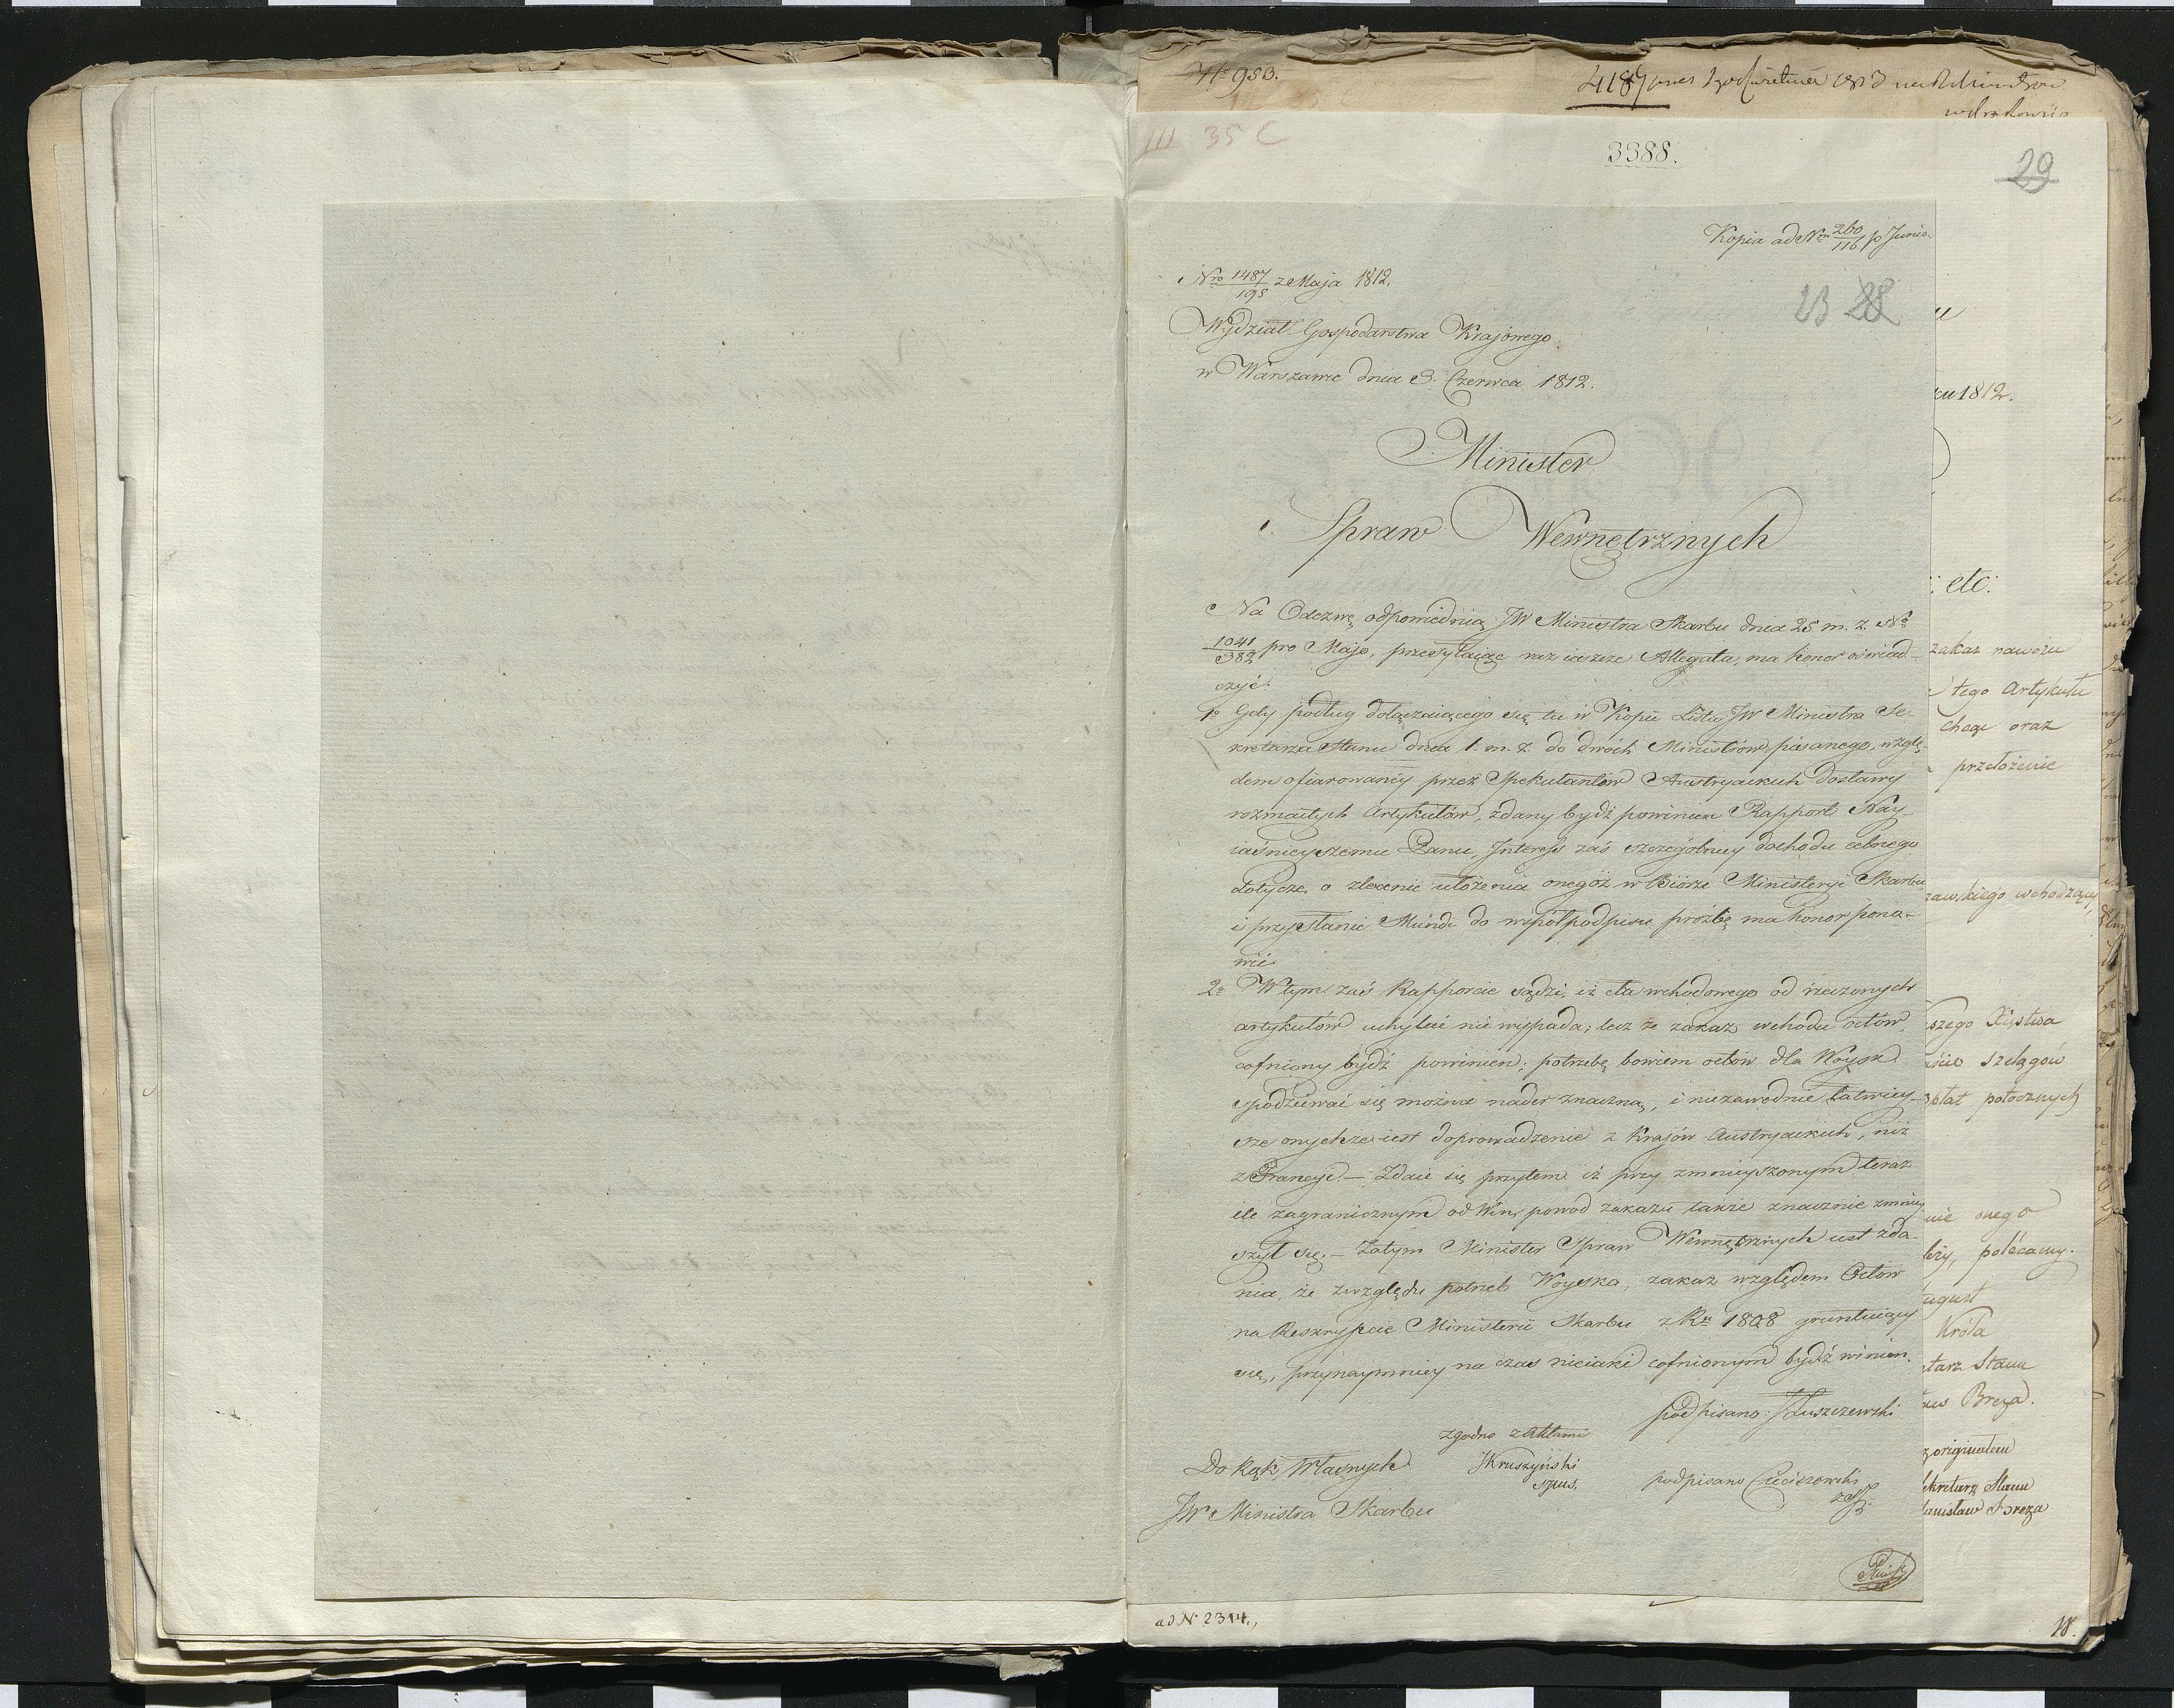 N° 953.
4189
III 35 C
3388.
29
Kopia ad Nrm 260/116 p Junio
Nro 1487/195 z Maja 1812.
23 28
Wydział Gospodarstwa Krajowego
w Warszawie dnia 3. Czerwca 1812.
Minister
Spraw Wewnętrznych
Na Odezwę odpowiednią JW Ministra Skarbu dnia 25 m. z. No
1041/382 pro Majo, przesyłaiąc raz ieszcze Allegata, ma honor oświad-
czyć:
1o Gdy podług dołączaiącego się tu w Kopii Listu JW Ministra Se-
kretarza Stanu dnia 1. m. z. do dwóch Ministrów pisanego, wzglę-
dem ofiarowaney przez Spekulantów Austryackich dostawy
rozmaitych Artykułów, zdany bydź powinien Rapport Nay-
iaśnieyszemu Panu, Interess zaś szczególniey dochodu celnego
dotyczę, o zlecenie ułożenia onegoż w Biórze Ministeryi Skarbu
i przysłanie Mundi do współpodpisu prożbę ma honor pono-
wić.
2o W tym zaś Rapporcie sądzi, iż cła wchodowego od rzeczonych
artykułów uchylać nie wypada; lecz że zakaz wchodu octów
cofniony bydź powinien; potrzebę bowiem octów dla Woysk
spodziewać się można nader znaczną, i niezawodnie łatwiey-
sze onychże iest doprowadzenie z Krajów Austryackich, niż
z Francyi. — Zdaie się przytem iż przy zmnieyszonym teraz
cle zagranicznym od Win, powod zakazu także znacznie zmniey
szył się. — Zatym Minister Spraw Wewnętrznych iest zda-
nia, że z względu potrzeb Woyska, zakaz względem Octów
na Reskrypcie Ministerii Skarbu z Ru 1808 gruntuiący
się, przynaymniey na czas nieiaki cofnionym bydź winien.
podpisano: JŁuszczewski
zgodno z aktami
JKruszyński
szus.
podpisano Cieciszowski
zsj.
Do Rąk Własnych
JW Ministra Skarbu
ad N. 2314.,
18.
ku 1812.
: etc:
zakaz nawozu
tego Artykułu
chcąc oraz
przełożenie
zawskiego wchodzący
szego Xięstwa
szelągów
płat potocznych
nie onego
leży, polécamy.
ugust
Króla
etarz Stanu
aw Breza.
z originałem
Sekretarz Stanu
tanisław Breza